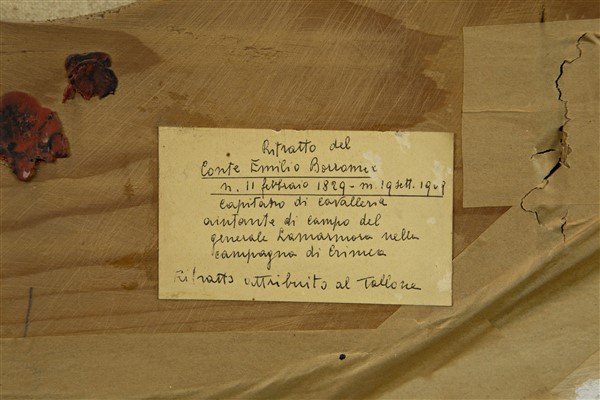 Ritratto del
Conte Emilio Borromeo
n. 11 febbraio 1829 - m. 19 sett. 1909
capitano di cavalleria
aiutante di campo del
generale Lamarmora nella
campagna di Crimea
Ritratto attribuito al Tallone